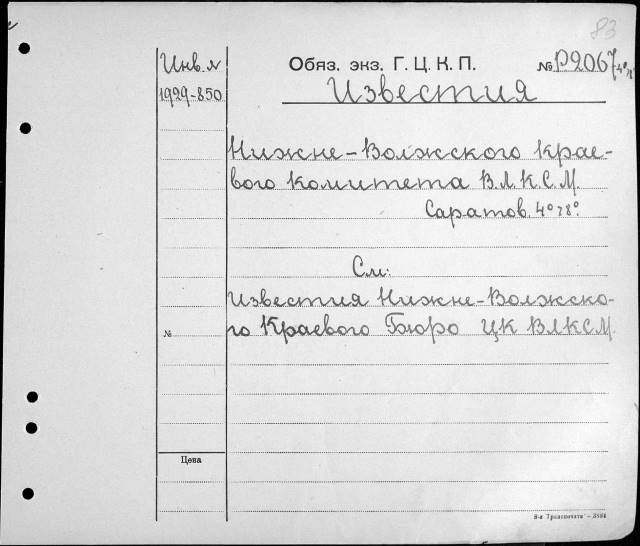 83
Инв. №
1929-850
Обяз. экз. Г. Ц. К. П.
№ P2067 4°78°
Известия
Нижне-Волжского крае-
вого комитета В.Л.К.С.М.
Саратов. 4°78°.
См:
Известия Нижне-Волжско-
го Краевого Бюро ЦК ВЛКСМ.
№
Цена